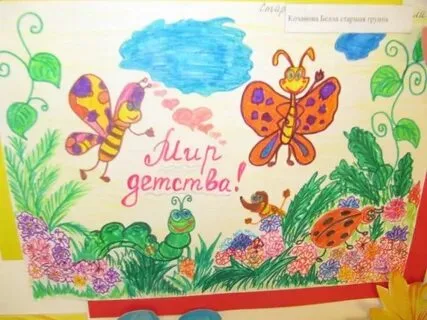 Стар
Кочанова Белла старшая группа
Мир
детства!